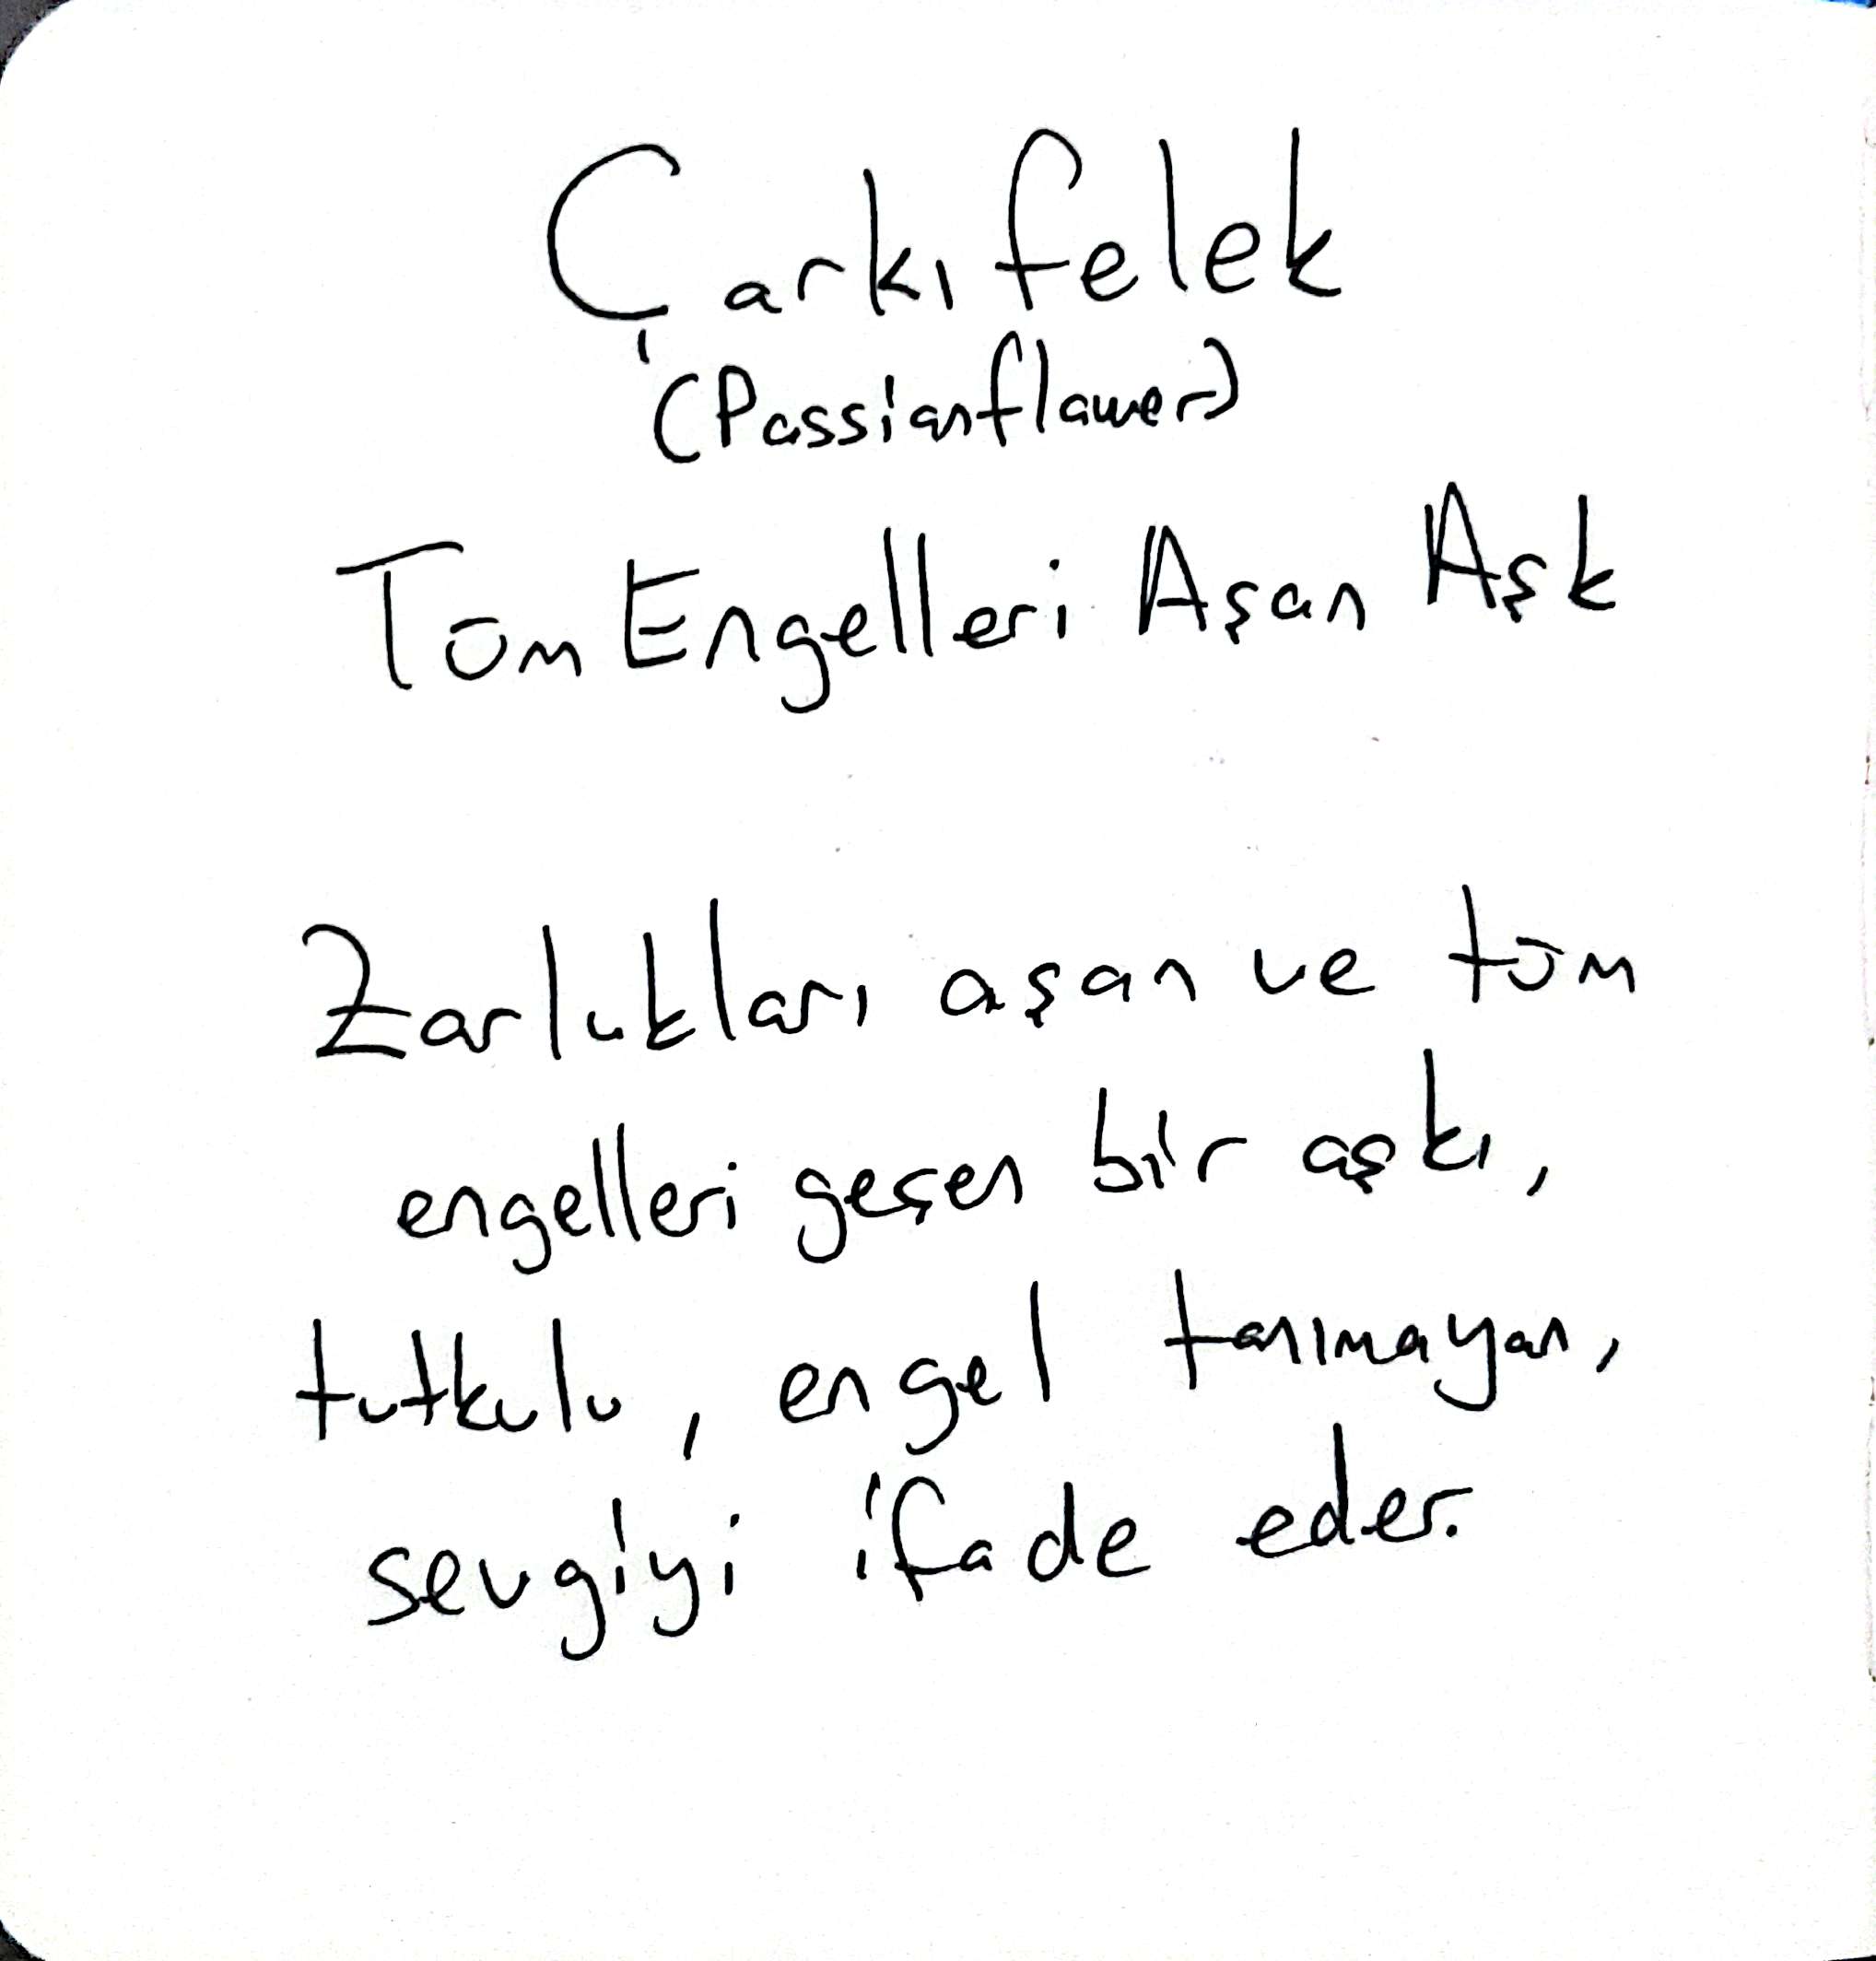 Çarkıfelek
(Passionflower)
Tüm Engelleri Aşan Aşk
Zorlukları aşan ve tüm
engelleri geçen bir aşkı,
tutkulu, engel tanımayan,
sevgiyi ifade eder.